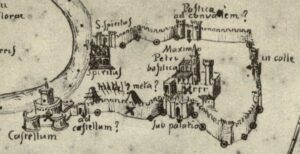 S. Spiritus
Postica
ad convalem?
Maximo
Petri
basilica
in colle
Spiritus
meta?
ad
castellum?
Castellum
sub palatio